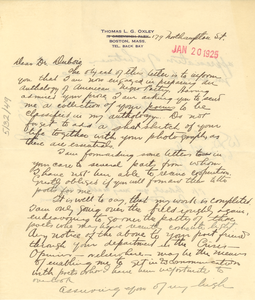 THOMAS L. G. OXLEY
BOSTON, MASS.
TEL. BACK BAY
177 Northampton St
JAN 20 1925
Dear Dr. Dubois,
The object of this letter is to inform
you that I am now engaged in preparing an
Anthology of American Negro Poetry. Having
admired your poems I am asking you to send
me a collection of your poems to be
classified in my anthology. Do not
forget to add a short sketch of your
life together with your photograph, as
these are essentials.
I am forwarding some letters to
you care to several poets from whom
I have not been able to
greatly obliged if you will forward these letters
poets for me.
It is well to say, that my work is completed
I am now going over the field again,
endeavoring to get the poetry of those
poets who may have
Any notice of the above to your
through your department in the Crisis
Opinion or elsewhere may be the means
of enabling me to get in communication
with poets who have been unfortunate to
overlook.
Assuring you of my high